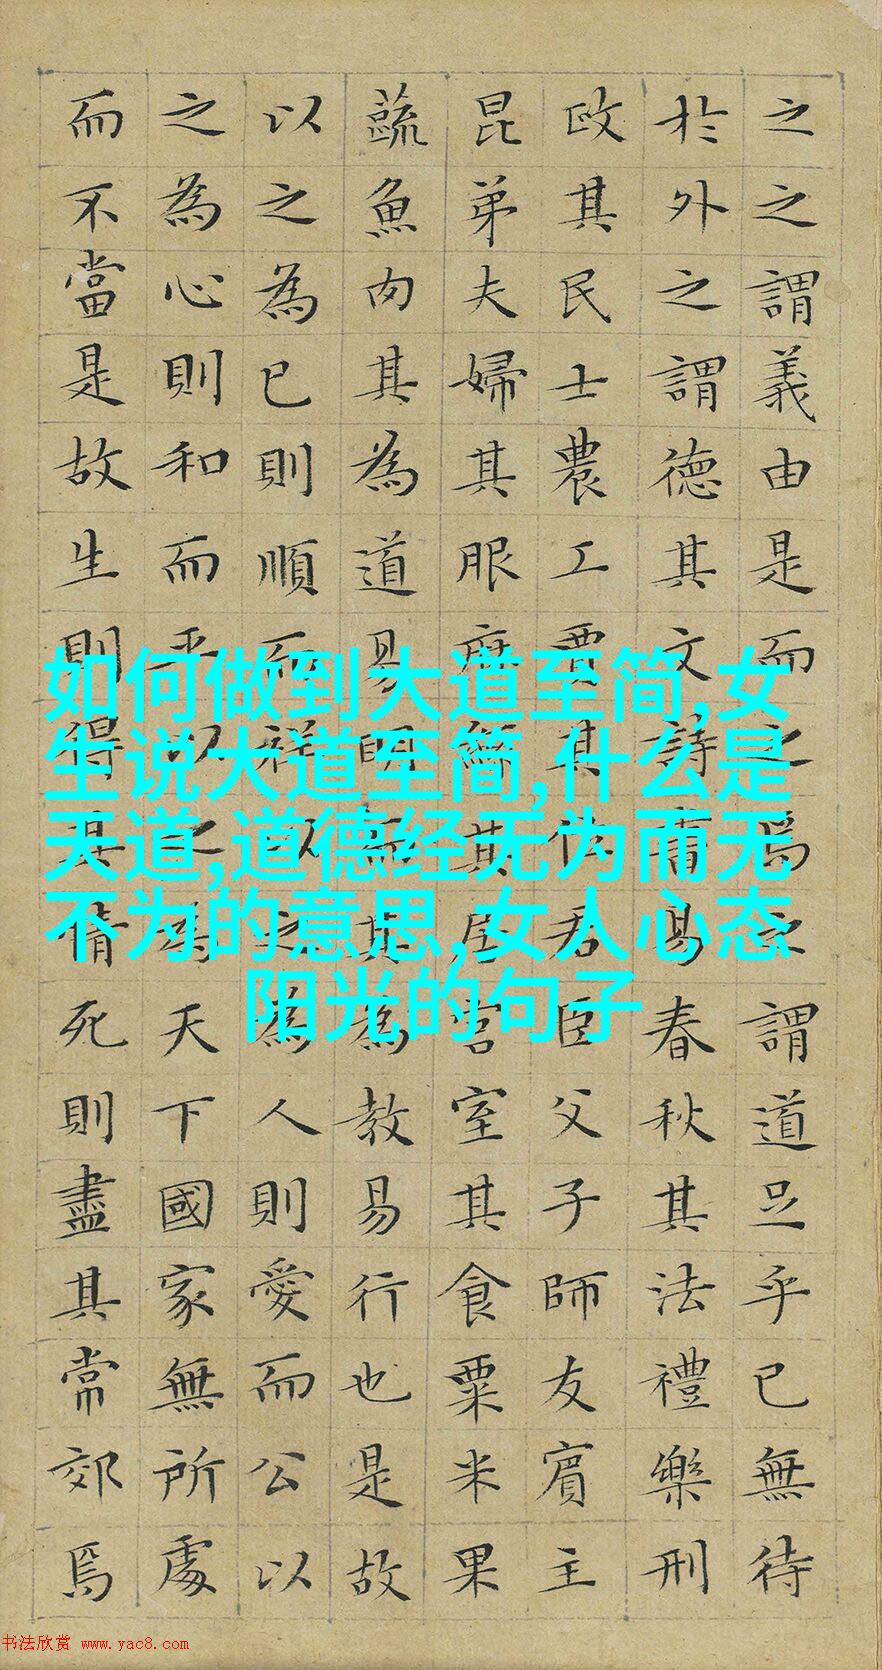 之之謂義由是而之焉之謂道足乎已無待
於外之謂德其文詩書易春秋其法禮樂刑
政其民士農工賈其位君臣父子師友賓主
昆弟夫婦其服麻絲其居宮室其食粟米果
蔬魚肉其為道易明而其為教易行也是故
以之為已則順而祥以之為人則愛而公以
之為心則和而平以之為天下國家無所處
而不當是故生則得其情死則盡其常郊焉
如何做到大道至简,女
生说大道至简,什么是
天道,道德经无为而无
不为的意思,女人心态
阳光的句子
书法欣赏 www.yac8.com